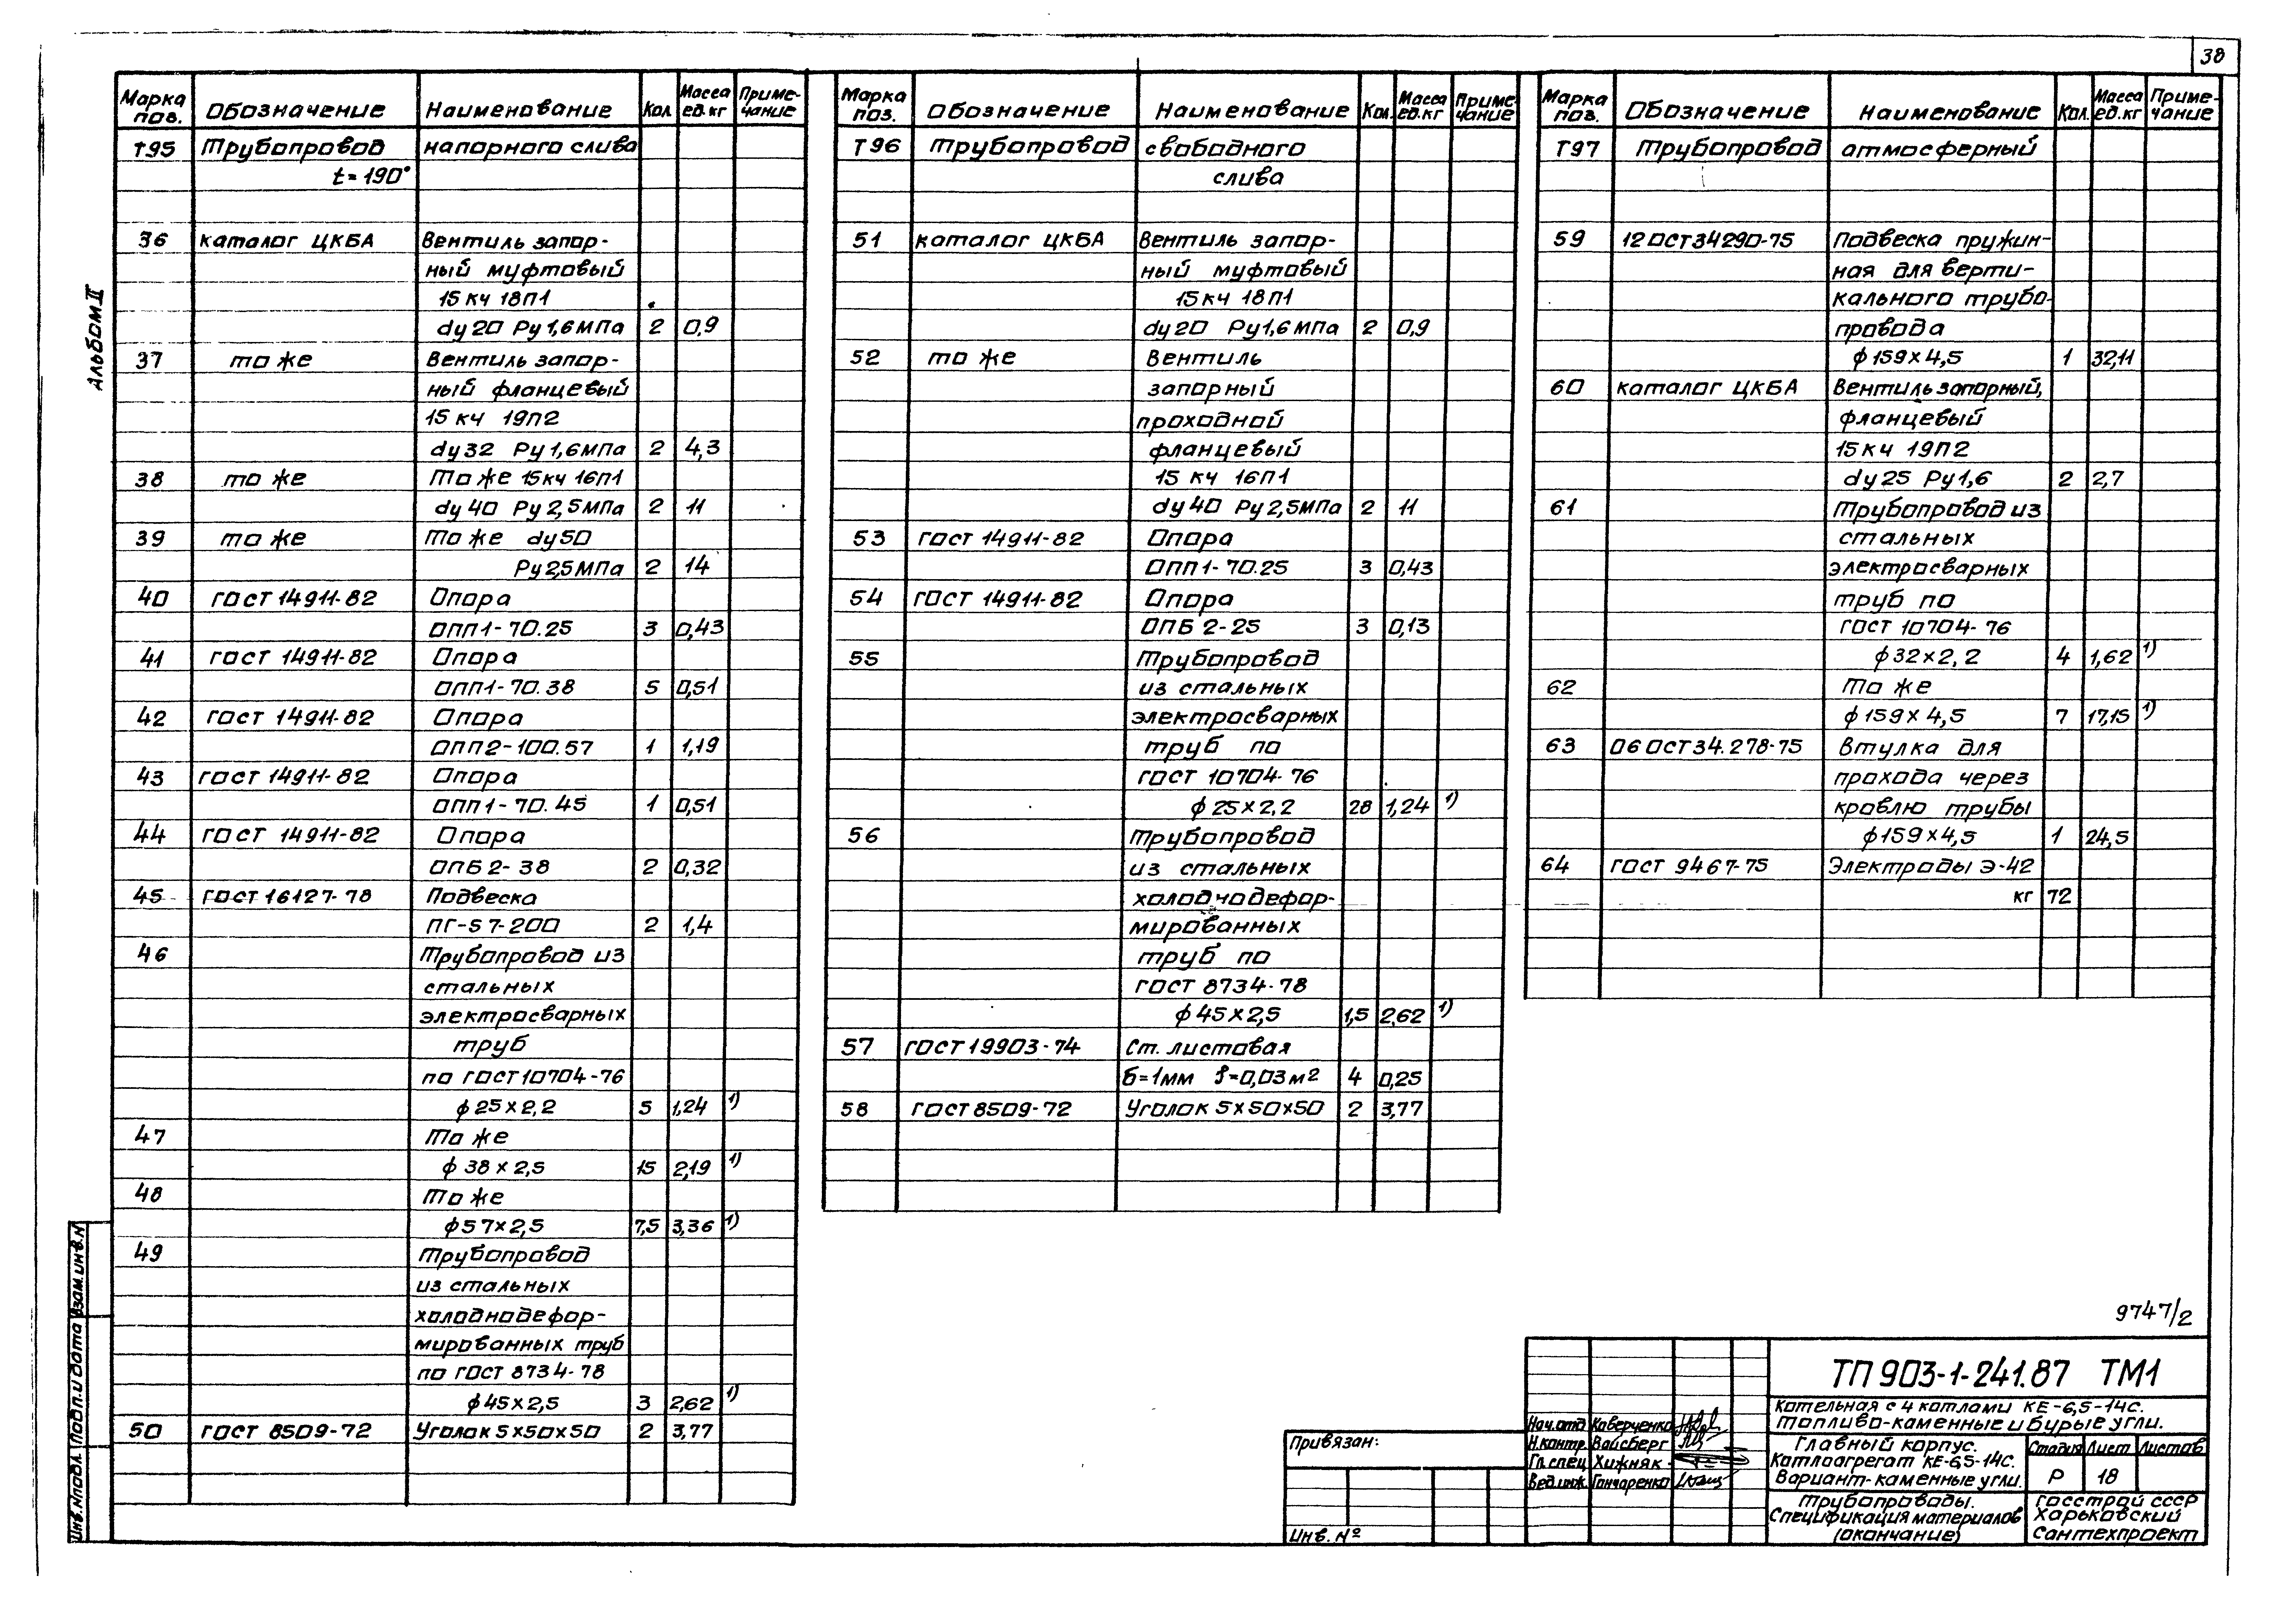 38
Альбом II
Марка поз. Обозначение Наименование Кол Масса ед.кг Примечание
Т95 Трубопровод напорного слива
t=190°
36 каталог ЦКБА Вентиль запор-
ный муфтовый
15кч 18п1
dу20 Ру1,6МПа 2 0,9
37 то же Вентиль запор-
ный фланцевый
15кч 19п2
dу32 Ру1,6МПа 2 4,3
38 то же То же 15кч 16п1
dу40 Ру2,5МПа 2 11
39 то же То же dу50
Ру2,5МПа 2 14
40 ГОСТ 14911-82 Опора
ОПП1-70.25 3 0,43
41 ГОСТ 14911-82 Опора
ОПП1-70.38 5 0,51
42 ГОСТ 14911-82 Опора
ОПП2-100.57 1 1,19
43 ГОСТ 14911-82 Опора
ОПП1-70.45 1 0,51
44 ГОСТ 14911-82 Опора
ОПБ2-38 2 0,32
45 ГОСТ 16127-78 Подвеска
ПГ-57-200 2 1,4
46 Трубопровод из
стальных
электросварных
труб
по ГОСТ 10704-76
ф25×2,2 5 1,24 1)
47 То же
ф38×2,5 15 2,19 1)
48 То же
ф57×2,5 7,5 3,36 1)
49 Трубопровод
из стальных
холоднодефор-
мированных труб
по ГОСТ 8734-78
ф45×2,5 3 2,62 1)
50 ГОСТ 8509-72 Уголок 5×50×50 2 3,77
Марка поз. Обозначение Наименование Кол. Масса ед.кг Примечание
Т96 Трубопровод свободного
слива
51 каталог ЦКБА Вентиль запор-
ный муфтовый
15кч 18п1
dу20 Ру1,6МПа 2 0,9
52 то же Вентиль
запорный
проходной
фланцевый
15 кч 16п1
dу40 Ру2,5МПа 2 11
53 ГОСТ 14911-82 Опора
ОПП1-70.25 3 0,43
54 ГОСТ 14911-82 Опора
ОПБ 2-25 3 0,13
55 Трубопровод
из стальных
электросварных
труб по
ГОСТ 10704-76
ф25×2,2 28 1,24 1)
56 Трубопровод
из стальных
холоднодефор-
мированных
труб по
ГОСТ 8734-78
ф45×2,5 1,5 2,62 1)
57 ГОСТ 19903-74 Ст. листовая
б=1мм f=0,03м2 4 0,25
58 ГОСТ 8509-72 Уголок 5×50×50 2 3,77
Марка поз. Обозначение Наименование Кол. Масса ед.кг Примечание
Т97 Трубопровод атмосферный
59 12 ОСТ34290-75 Подвеска пружин-
ная для верти-
кального трубо-
провода
ф159×4,5 1 32,11
60 каталог ЦКБА Вентиль запорный,
фланцевый
15кч 19п2
dу25 Ру1,6 2 2,7
61 Трубопровод из
стальных
электросварных
труб по
ГОСТ 10704-76
ф32×2,2 4 1,62 1)
62 То же
ф159×4,5 7 17,15 1)
63 06 ОСТ34.278-75 Втулка для
прохода через
кровлю трубы
ф159×4,5 1 24,5
64 ГОСТ 9467-75 Электроды Э-42
кг 72
9747/2
ТП 903-1-241.87 ТМ1
Котельная с 4 котлами КЕ-6,5-14С.
Топливо-каменные и бурые угли.
Нач.отд Каверченко
Н.контр. Вайсберг
Гл.спец Хижняк
Вед.инж. Гончаренко
Главный корпус.
Котлоагрегат КЕ-6,5-14С.
Вариант-каменные угли.
Стадия Лист Листов
Р 18
Трубопроводы.
Спецификация материалов
(окончание)
Госстрой СССР
Харьковский
Сантехпроект
Привязан:
Инв. №
Инв.№подл. Подп. и дата Взам.инв.№